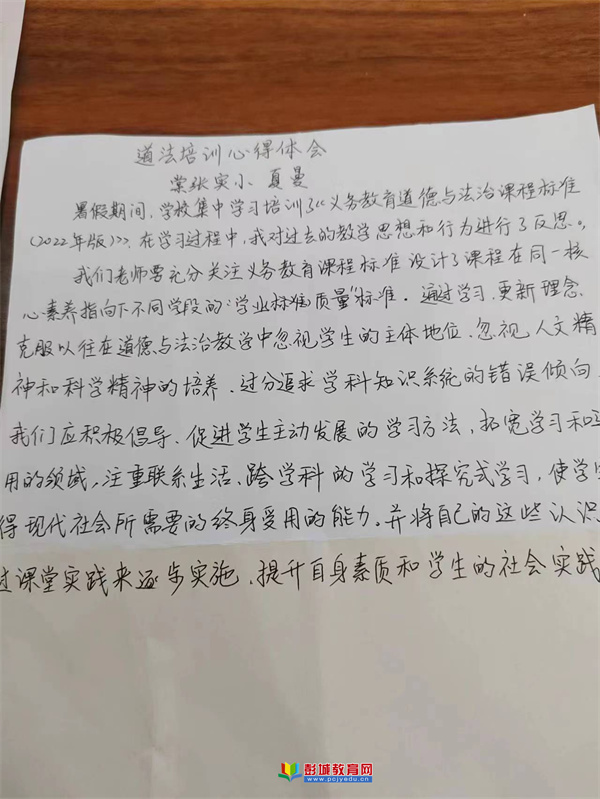 道法培训心得体会
棠张实小 夏曼
暑假期间,学校集中学习培训了《义务教育道德与法治课程标准
(2022年版)》,在学习过程中,我对过去的教学思想和行为进行了反思。
我们老师要充分关注义务教育课程标准设计了课程在同一核
心素养指向下不同学段的“学业标准质量”标准.通过学习、更新理念,
克服以往在道德与法治教学中忽视学生的主体地位、忽视人文精
神和科学精神的培养、过分追求学科知识系统的错误倾向,
我们应积极倡导、促进学生主动发展的学习方法,拓宽学习和
用的领域,注重联系生活、跨学科的学习和探究式学习,使学
得现代社会所需要的终身受用的能力.并将自己的这些认识
过课堂实践来逐步实施,提升自身素质和学生的社会实践
彭城教育网
www.pcjyedu.cn